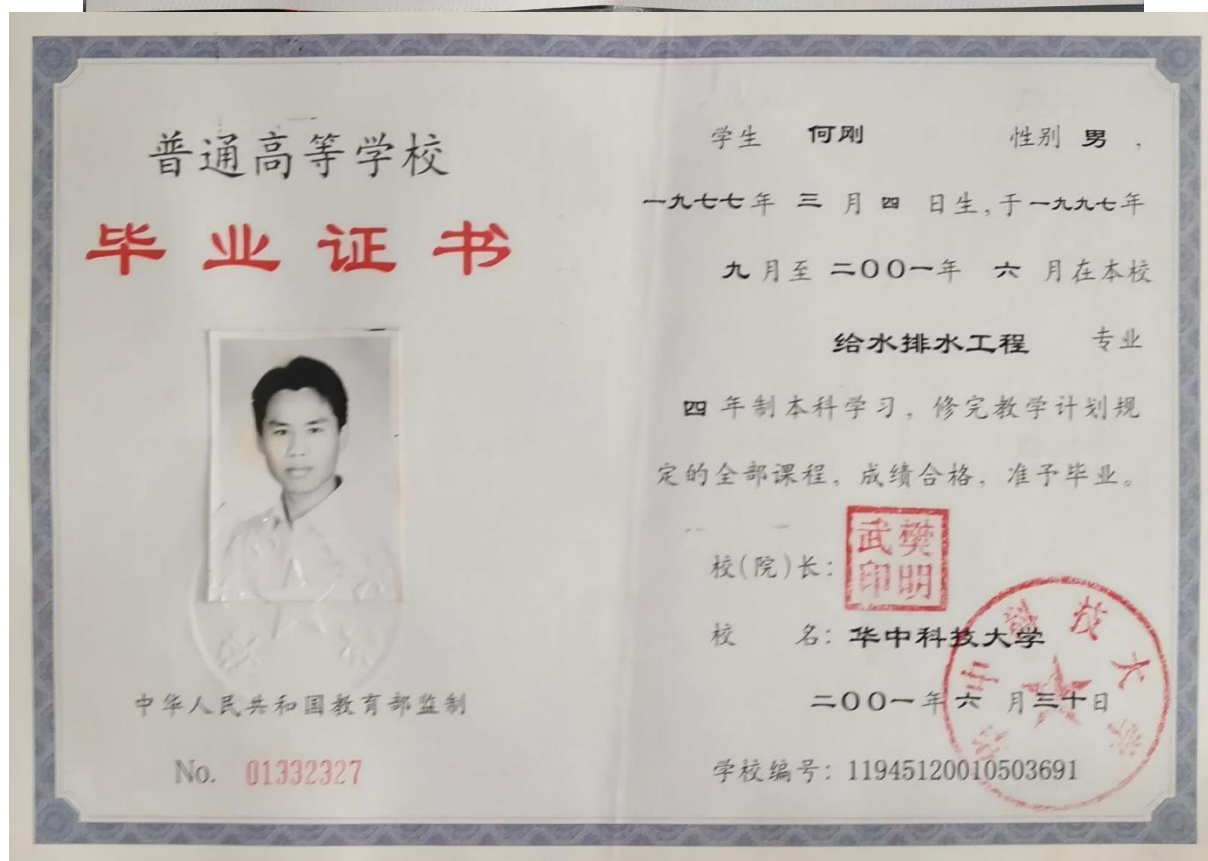 普通高等学校
毕业证书
中华人民共和国教育部监制
No. 01332327
学生 何刚 性别 男 ,
一九七七年 三 月 四 日生,于一九九七年
九 月至 二〇〇一年 六 月在本校
给水排水工程 专业
四 年制本科学习, 修完教学计划规
定的全部课程, 成绩合格, 准予毕业。
校(院)长:
樊明武印
校 名: 华中科技大学
二〇〇一年 六 月三十日
学校编号: 11945120010503691
华中科技大学